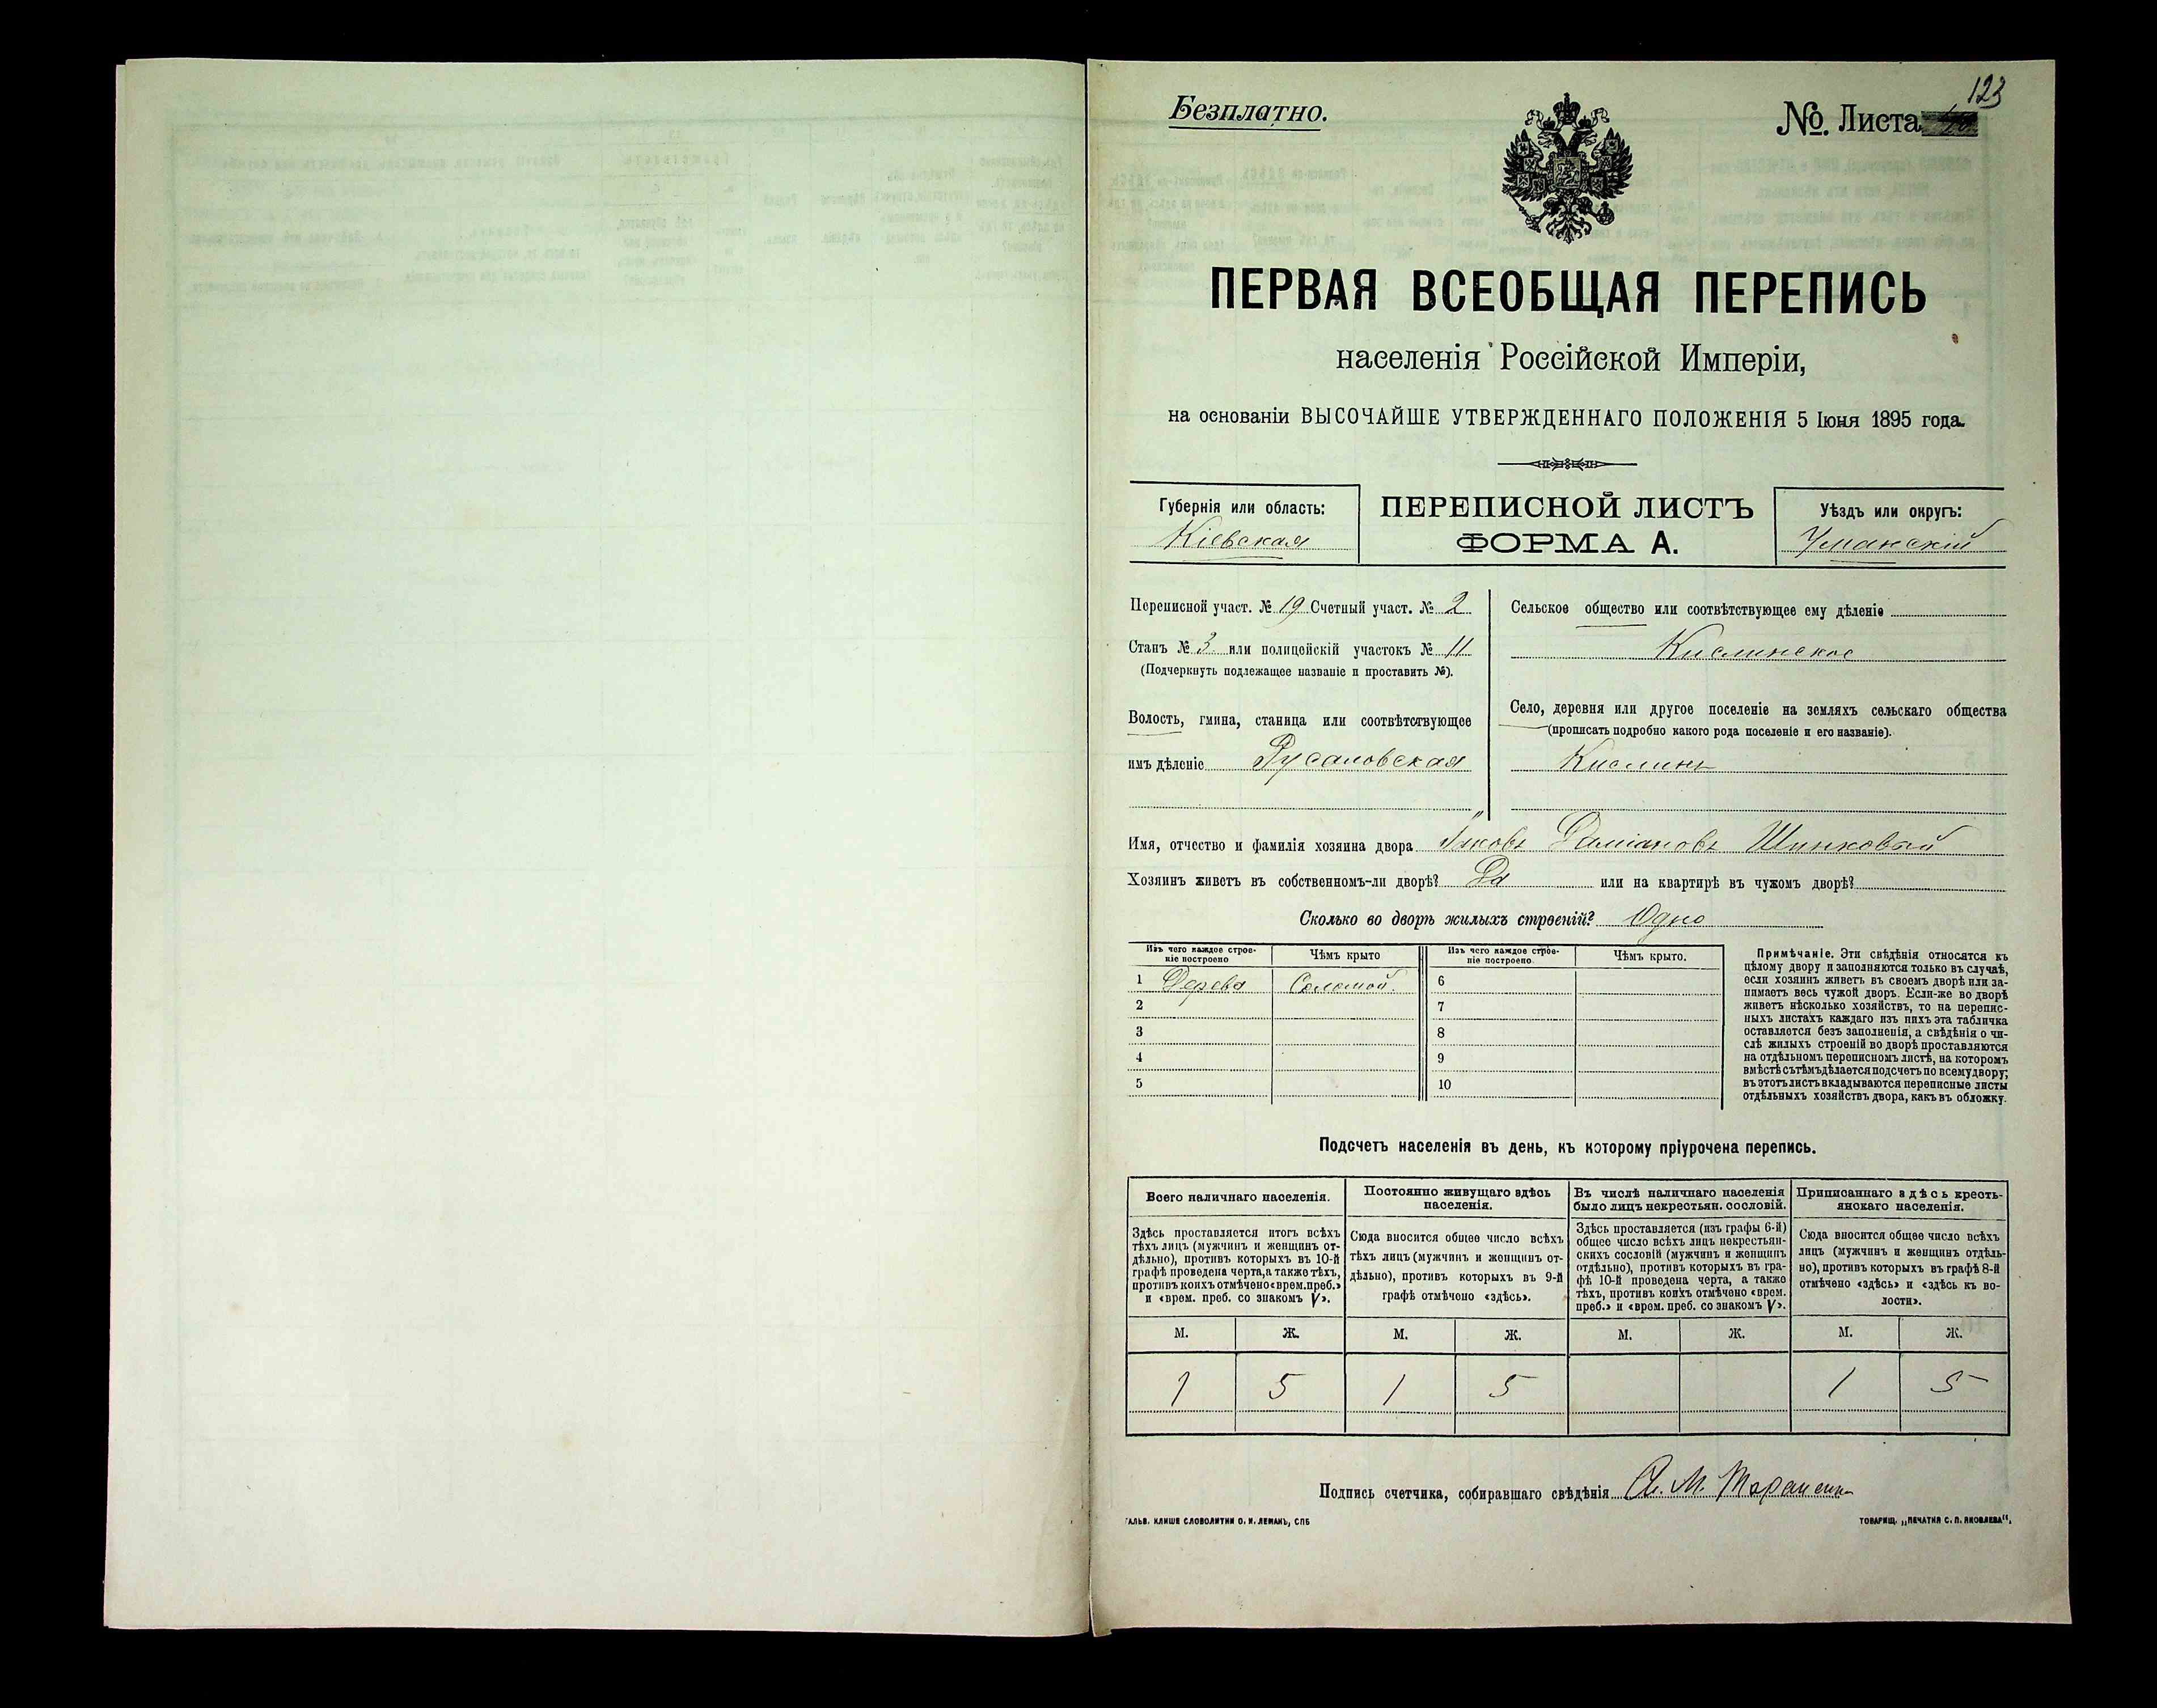 123
Безплатно.
№. Листа
ПЕРВАЯ ВСЕОБЩАЯ ПЕРЕПИСЬ
населенія Россійской Имперіи,
на основаніи ВЫСОЧАЙШЕ УТВЕРЖДЕННАГО ПОЛОЖЕНІЯ 5 Іюня 1895 года.
Губернія или область:
Кіевская
ПЕРЕПИСНОЙ ЛИСТЪ
ФОРМА А.
Уѣздъ или округъ:
Уманскій
Переписной участ. № 19 Счетный участ. № 2
Станъ № 3 или полицейскій участокъ № 11
(Подчеркнуть подлежащее названіе и проставить №).
Волость, гмина, станица или соотвѣтствующее
имъ дѣленіе Русаловская
Сельское общество или соотвѣтствующее ему дѣленіе
Кислинское
Село, деревня или другое поселеніе на земляхъ сельскаго общества
(прописать подробно какого рода поселеніе и его названіе).
Кислинъ
Имя, отчество и фамилія хозяина двора Яковъ Даміановъ Шинковой
Хозяинъ живетъ въ собственномъ-ли дворѣ? Да или на квартирѣ въ чужомъ дворѣ?
Сколько во дворѣ жилыхъ строеній? Одно
Изъ чего каждое строе-
ніе построено
Чѣмъ крыто
Изъ чего каждое строе-
ніе построено
Чѣмъ крыто.
1 Дерева Соломой. 6
2 7
3 8
4 9
5 10
Примѣчаніе. Эти свѣдѣнія относятся къ
цѣлому двору и заполняются только въ случаѣ,
если хозяинъ живетъ въ своемъ дворѣ или за-
нимаетъ весь чужой дворъ. Если-же во дворѣ
живетъ нѣсколько хозяйствъ, то на перепис-
ныхъ листахъ каждаго изъ нихъ эта табличка
оставляется безъ заполненія, а свѣдѣнія о чи-
слѣ жилыхъ строеній во дворѣ проставляются
на отдѣльномъ переписномъ листѣ, на которомъ
вмѣстѣ съ тѣмъ дѣлается подсчетъ по всему двору;
въ этотъ листъ вкладываются переписные листы
отдѣльныхъ хозяйствъ двора, какъ въ обложку.
Подсчетъ населенія въ день, къ которому пріурочена перепись.
Всего наличнаго населенія.
Здѣсь проставляется итогъ всѣхъ
тѣхъ лицъ (мужчинъ и женщинъ от-
дѣльно), противъ которыхъ въ 10-й
графѣ проведена черта, а также тѣхъ,
противъ коихъ отмѣчено «врем. преб.»
и «врем. преб. со знакомъ V».
Постоянно живущаго здѣсь
населенія.
Сюда вносится общее число всѣхъ
тѣхъ лицъ (мужчинъ и женщинъ от-
дѣльно), противъ которыхъ въ 9-й
графѣ отмѣчено «здѣсь».
Въ числѣ наличнаго населенія
было лицъ некрестьян. сословій.
Здѣсь проставляется (изъ графы 6-й)
общее число всѣхъ лицъ некрестьян-
скихъ сословій (мужчинъ и женщинъ
отдѣльно), противъ которыхъ въ гра-
фѣ 10-й проведена черта, а также
тѣхъ, противъ коихъ отмѣчено «врем.
преб.» и «врем. преб. со знакомъ V».
Приписаннаго здѣсь кресть-
янскаго населенія.
Сюда вносится общее число всѣхъ
лицъ (мужчинъ и женщинъ отдѣль-
но), противъ которыхъ въ графѣ 8-й
отмѣчено «здѣсь» и «здѣсь къ во-
лости».
М. Ж. М. Ж. М. Ж. М. Ж.
1 5 1 5 1 5
Подпись счетчика, собиравшаго свѣдѣнія
ГАЛЬВ. КЛИШЕ СЛОВОЛИТНИ О. И. ЛЕМАНЪ, СПБ
ТОВАРИЩ. „ПЕЧАТНЯ С. П. ЯКОВЛЕВА“.